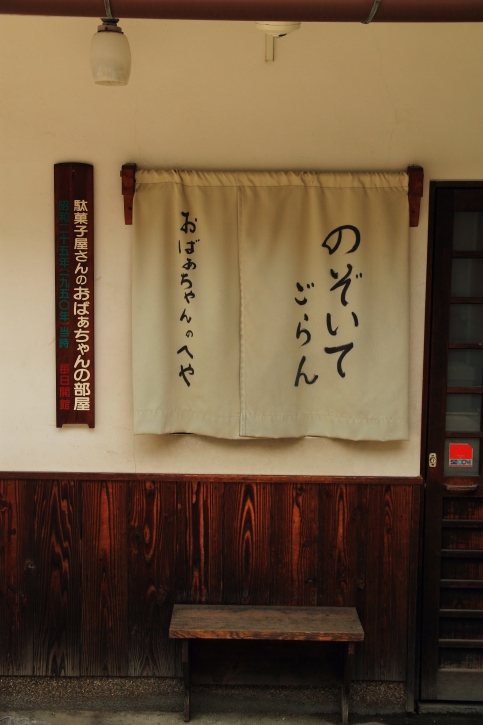 のぞいて
ごらん
おばぁちゃんのへや
駄菓子屋さんのおばぁちゃんの部屋
昭和二十五年(一九五〇年)当時 毎日開館
SECOM